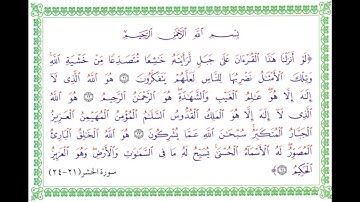 بِسْمِ اللَّهِ الرَّحْمَٰنِ الرَّحِيمِ
﴿لَوْ أَنزَلْنَا هَٰذَا الْقُرْءَانَ عَلَىٰ جَبَلٍ لَّرَأَيْتَهُ خَٰشِعًا مُّتَصَدِّعًا مِّنْ خَشْيَةِ اللَّهِ
وَتِلْكَ الْأَمْثَٰلُ نَضْرِبُهَا لِلنَّاسِ لَعَلَّهُمْ يَتَفَكَّرُونَ ۝٢١ هُوَ اللَّهُ الَّذِى لَا
إِلَٰهَ إِلَّا هُوَ عَٰلِمُ الْغَيْبِ وَالشَّهَٰدَةِ هُوَ الرَّحْمَٰنُ الرَّحِيمُ ۝٢٢ هُوَ اللَّهُ
الَّذِى لَا إِلَٰهَ إِلَّا هُوَ الْمَلِكُ الْقُدُّوسُ السَّلَٰمُ الْمُؤْمِنُ الْمُهَيْمِنُ الْعَزِيزُ
الْجَبَّارُ الْمُتَكَبِّرُ سُبْحَٰنَ اللَّهِ عَمَّا يُشْرِكُونَ ۝٢٣ هُوَ اللَّهُ الْخَٰلِقُ الْبَارِئُ
الْمُصَوِّرُ لَهُ الْأَسْمَاءُ الْحُسْنَىٰ يُسَبِّحُ لَهُ مَا فِى السَّمَٰوَٰتِ وَالْأَرْضِ وَهُوَ الْعَزِيزُ
الْحَكِيمُ ۝٢٤﴾
سورة الحشر (٢١-٢٤)